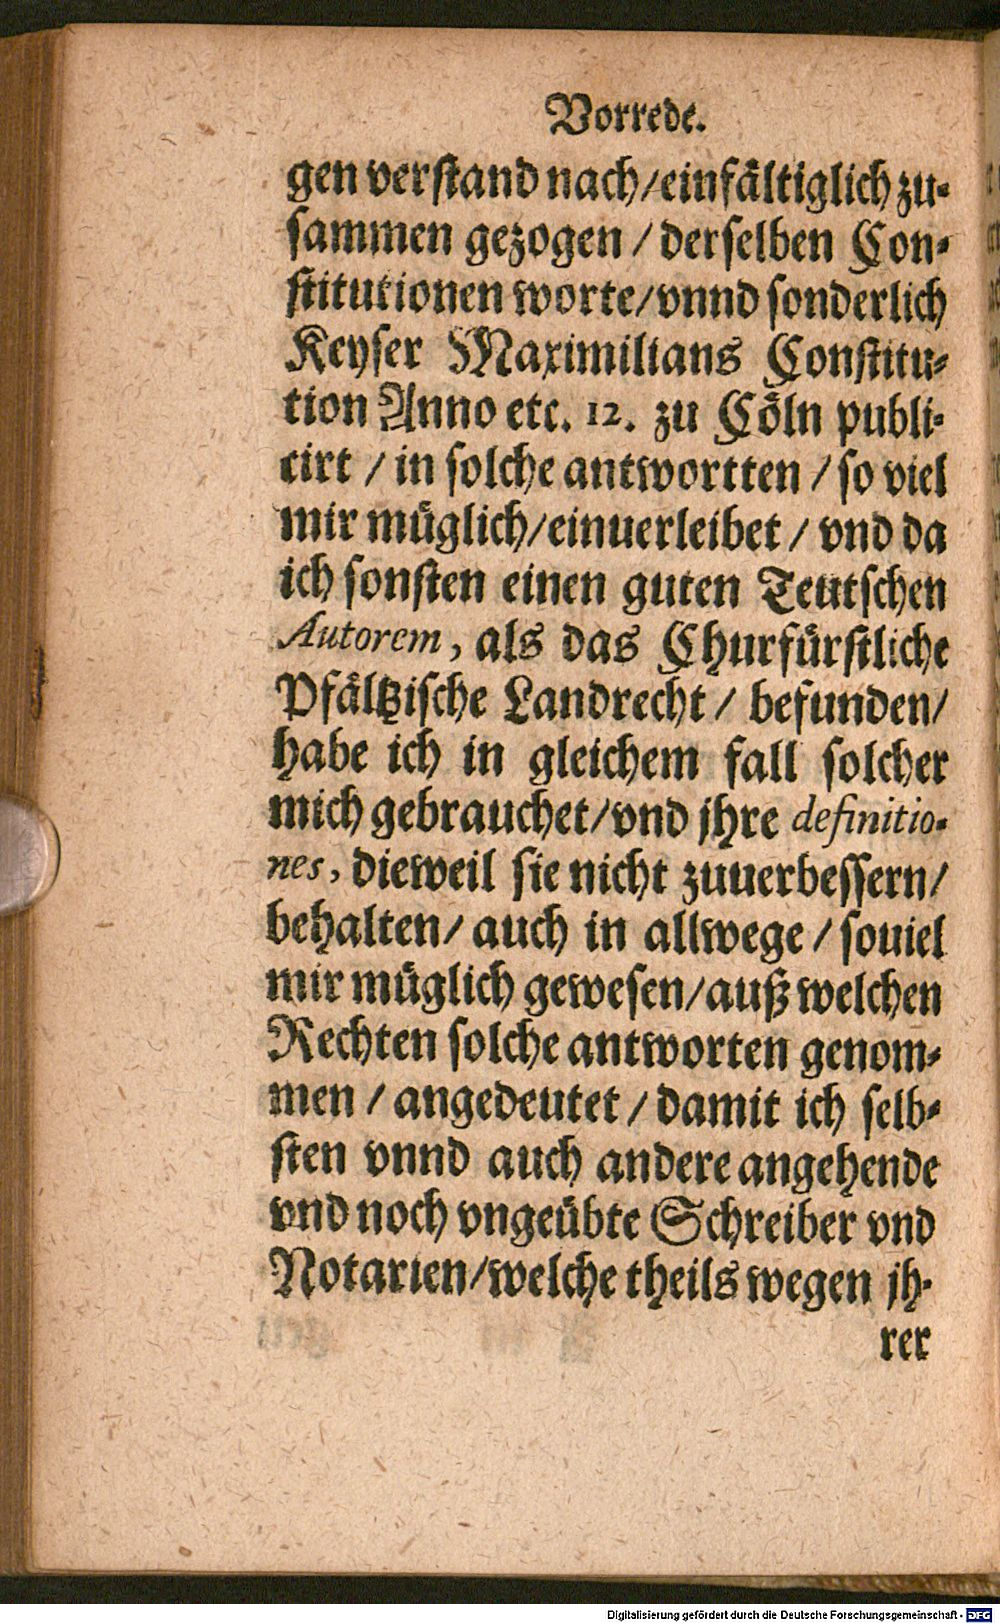 Vorrede.
gen verſtand nach/einfältiglich zu⸗
ſammen gezogen / derſelben Con⸗
ſtitutionen worte/vnnd ſonderlich
Keyſer Maximilians Conſtitu⸗
tion Anno etc. 12. zu Cöln publi⸗
cirt / in ſolche antwortten / ſo viel
mir müglich/einuerleibet / vnd da
ich ſonſten einen guten Teutſchen
Autorem, als das Churfürſtliche
Pfältziſche Landrecht / befunden/
habe ich in gleichem fall ſolcher
mich gebrauchet/vnd jhre definitio-
nes, dieweil ſie nicht zuuerbeſſern/
behalten/ auch in allwege / ſouiel
mir müglich geweſen/auß welchen
Rechten ſolche antworten genom⸗
men / angedeutet / damit ich ſelb⸗
ſten vnnd auch andere angehende
vnd noch vngeübte Schreiber vnd
Notarien/welche theils wegen jh⸗
rer
Digitalisierung gefördert durch die Deutsche Forschungsgemeinschaft - DFG